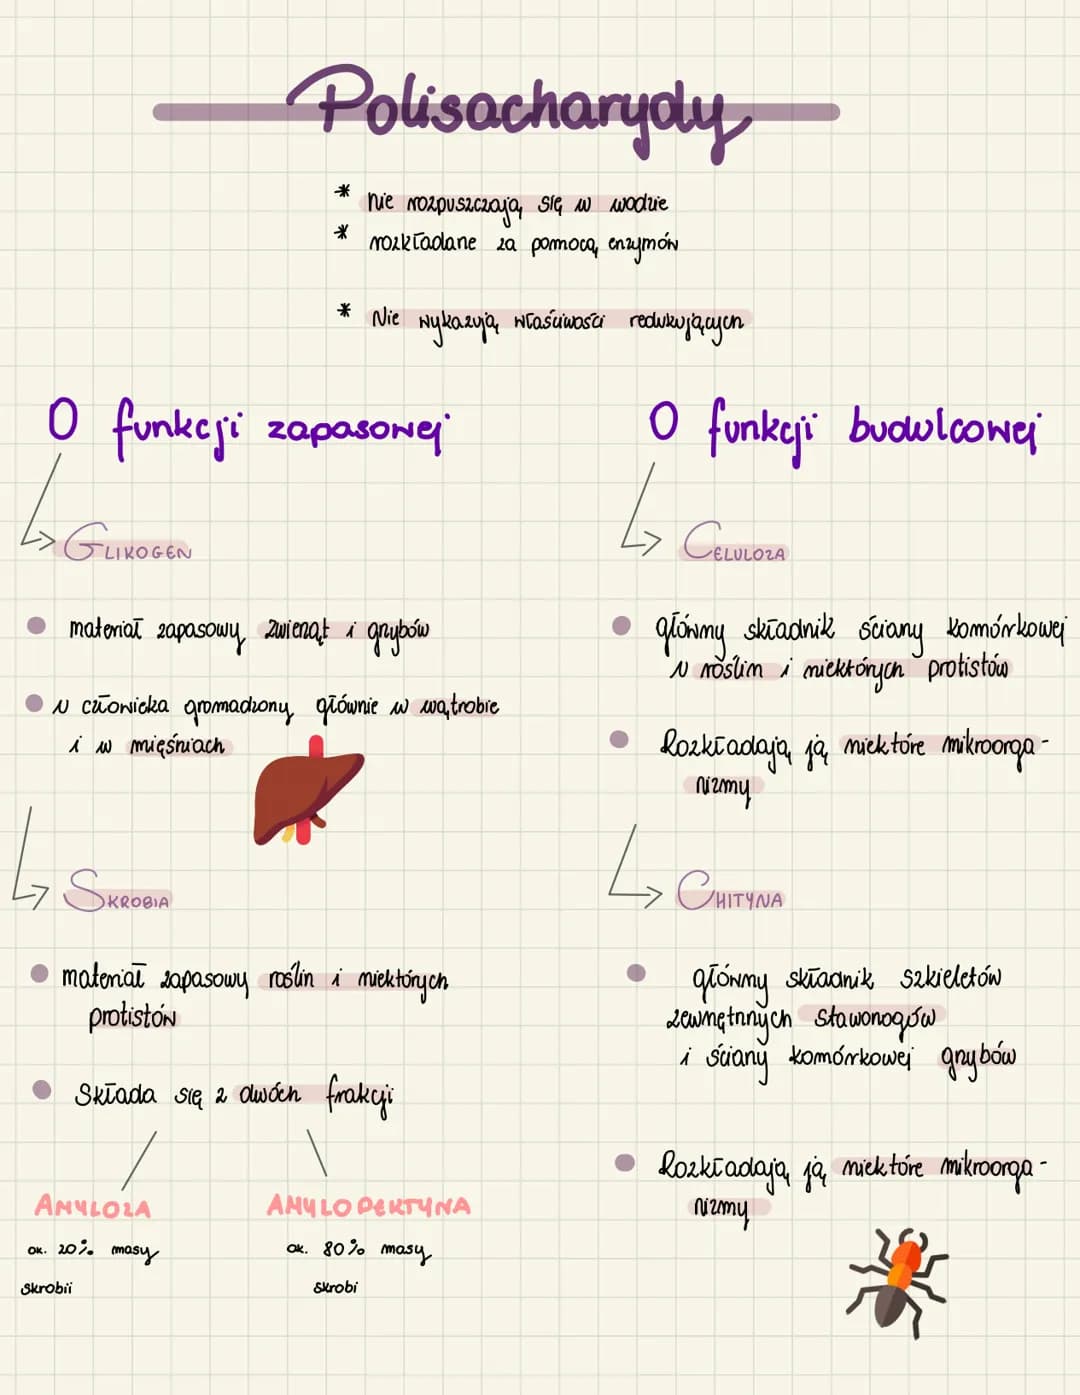 Polisacharydy
* nie rozpuszczają się w wodzie
* rozkładane za pomocą enzymów
* Nie wykazują właściwości redukujących
O funkcji zapasowej
GLIKOGEN
materiał zapasowy zwierząt i grzybów
u człowieka gromadzony głównie w wątrobie
i w mięśniach
SKROBIA
materiał zapasowy roślin i niektórych
protistów
Składa się z dwóch frakcji
AMYLOZA
ok. 20% masy
skrobii
AMYLOPEKTYNA
ok. 80% masy
skrobi
O funkcji budulcowej
CELULOZA
główny składnik ściany komórkowej
u roślin i niektórych protistów
Rozkładają ją niektóre mikroorga-
nizmy
CHITYNA
główny składnik szkieletów
zewnętrznych stawonogów
i ściany komórkowej grzybów
Rozkładają ją niektóre mikroorga-
nizmy